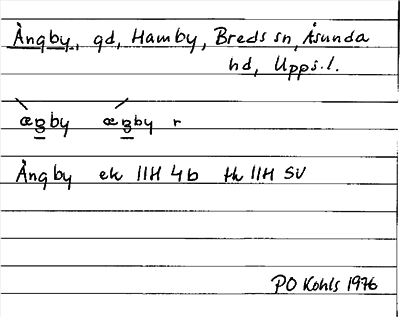 Ängby, gd, Hamby, Breds sn, Åsunda
hd, Upps.l.
ˋæꞬby ˊæꞬby r
Ängby ek 11H 4b tk 11H SV
PO Kohls 1976